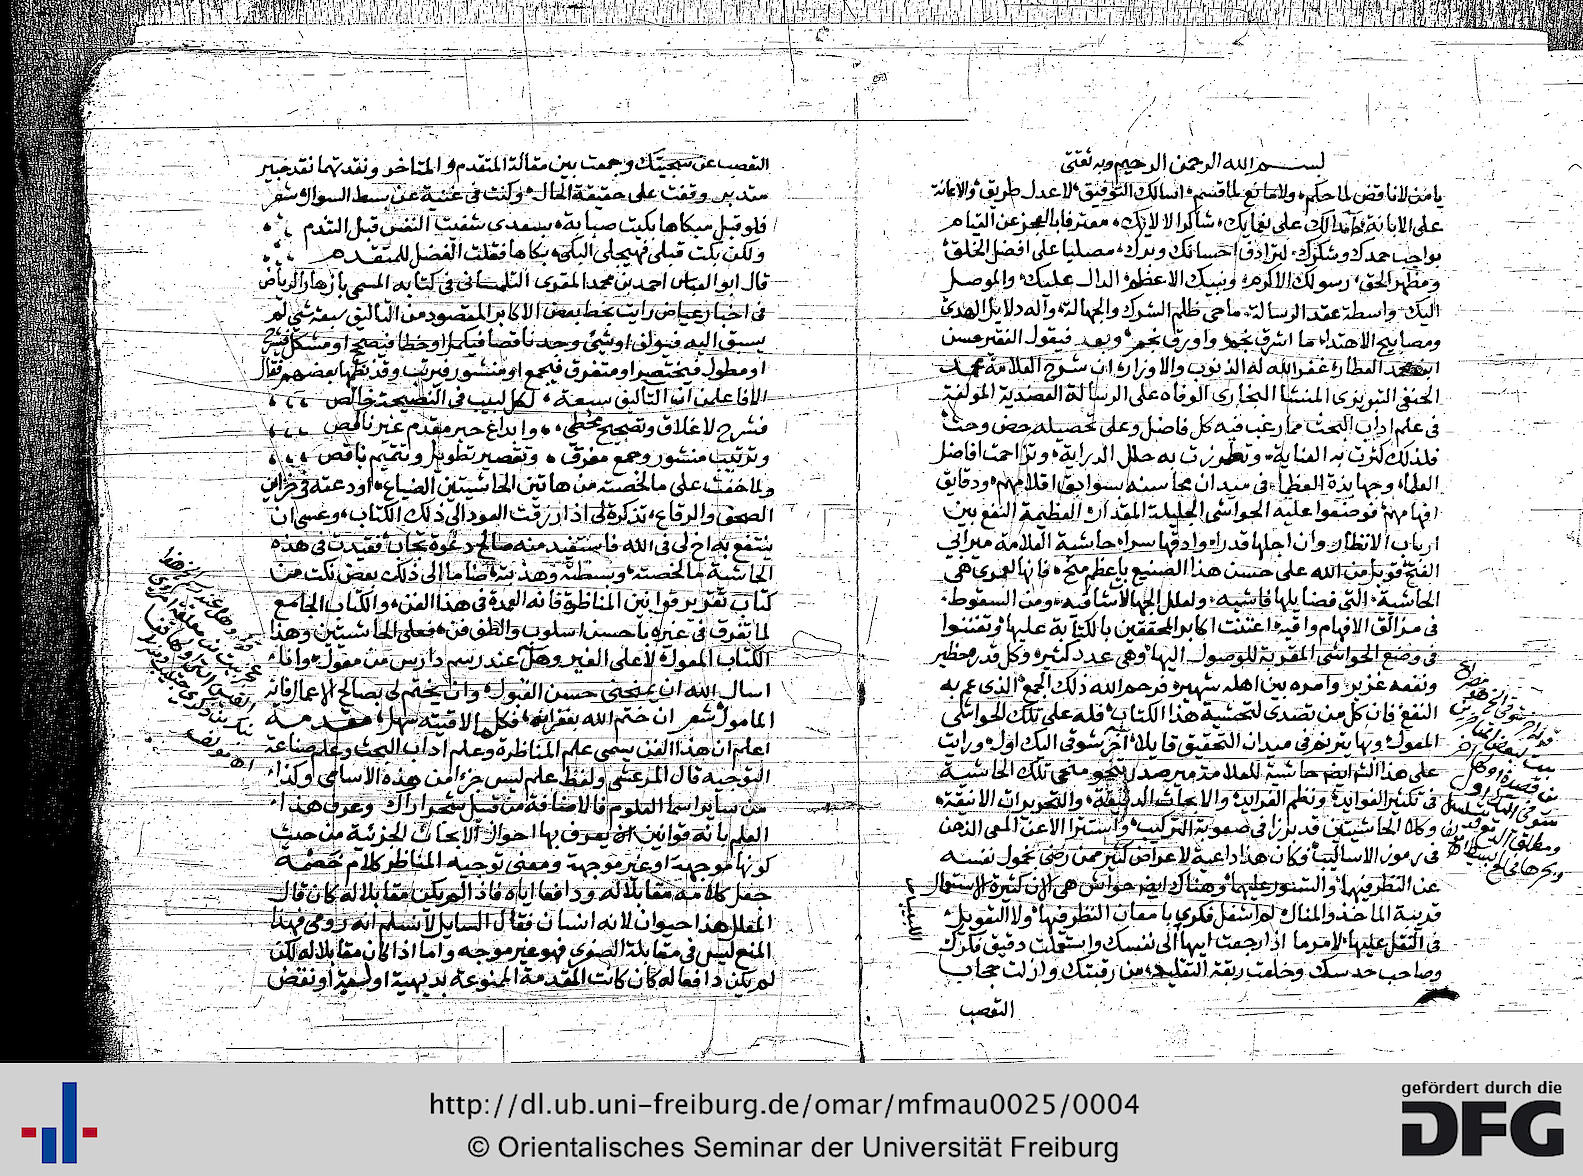 بسم الله الرحمن الرحيم وبه ثقتى
يا من لا ناقض لما حكم ولا مانع لما قسم اسالك التوفيق لاعدل طريق والاعانة
على الابانة حامدا لك على نعمايك شاكرا لالايك معترفا بالعجز عن القيام
بواجب حمدك وشكرك لترادف احسانك وبرك مصليا على افضل الخلق
ومظهر الحق رسولك الاكرم ونبيك الاعظم الدال عليك والموصل
اليك واسطة عقد الرسالة ماحى ظلم الشرك والجهالة وآله دلايل الهدى
ومصابيح الاهتداء ما اشرق نجم واورق نجم وبعد فيقول الفقير حسن
ابن محمد العطار غفر الله له الذنوب والاوزار ان شرح العلامة محمد
الحنفى التبريزى المنشا البخارى الوفاه على الرسالة العضدية المولفة
فى علم اداب البحث مما رغب فيه كل فاضل وعلى تحصيله حض وحث
فلذلك كثرت به العناية وتطرزت به حلل الدراية وتزاحمت افاضل
العلماء وجهابذة العظماء فى ميدان محاسنه سوابق اقلامهم ودقايق
افهامهم فوضعوا عليه الحواشى الجليلة المقدار العظيمة النفع بين
ارباب الانظار وان اجلها قدرا وادقها سرا حاشية العلامة مير ابى
الفتح قوبل من الله على حسن هذا الصنيع باعظم منح فانها لعمرى هى
الحاشية التى فضايلها فاشيه ولعلل الجهالات شافيه ومن السقوط
فى مزالق الافهام واقية اعتنت اكابر المحققين بالكتابة عليها وتفننوا
فى وضع الحواشى المقربة للوصول اليها وهى عدد كثير وكل قدره خطير
ونفعه غزير وامره بين اهله شهير فرحم الله ذلك الجمع الذى عم به
النفع فان كل من تصدى لتحشية هذا الكتاب فله على تلك الحواشى
المعول وبها يترنم فى ميدان التحقيق قايلا آخر شوقى اليك اول ورايت
على هذا الشرح ايض حاشية للعلامة مير صدر تنحو منحى تلك الحاشية
فى تكثير الفوايد ونظم الفرايد والابحاث الدقيقة والتحريرات الانيقة
وكلا الحاشيتين قد برزا فى صعوبة التركيب واستترا الا عن المعى الذهن
فى رموز الاساليب فكان هذا داعية لاعراض كثير ممن رضى بخمول نفسه
عن النظر فيها والتسور عليها وهناك ايض حواش هى الان كثيرة الاستعمال
قريبة الماخذ والمنال لم اشغل فكرى بامعان النظر فيها ولا التعويل
فى النقل عليها لامر ما اذا رجعت ايها الى نفسك واستعملت دقيق فكرك
وصاحب حدسك وخلعت ربقة التقليد من رقبتك وازلت حجاب
التعصب
اللبيب
التعصب عن سجيتك وجمعت بين مقالة المتقدم والمتاخر ونقدتهما نقد خبير
متدبر وقفت على حقيقة الحال وكنت فى غنية عن بسط السوال شعر
فلو قبل مبكاها بكيت صبابة بسعدى شفيت النفس قبل التندم
ولكن بكت قبلى فهيج لى البكى بكاها فقلت الفضل للمتقدم
قال ابو العباس احمد بن محمد المقرى التلمسانى فى كتابه المسمى بازهار الرياض
فى اخبار عياض رايت بخط بعض الاكابر المقصود من التاليف سبعة شى لم
يسبق اليه فيولف او شئ وجد ناقصا فيكمل او خطا فيصحح او مشكل فيشرح
او مطول فيختصر او متفرق فيجمع او منثور فيرتب وقد نظمها بعضهم فقال
الا فاعلمن ان التاليف سبعة لكل لبيب فى النصيحة خالص
فشرح لاغلاق وتصحيح مخطى وابداع حبر مقدم غير ناكص
وترتيب منثور وجمع مفرق وتقصير تطويل وتتميم ناقص
ولما خفت على ما لخصته من هاتين الحاشيتين الضياع اودعته فى خزاين
الصحف والرقاع تذكرة لى اذا رزقت العود الى ذلك الكتاب وعسى ان
ينتفع به اخ لى فى الله فاستفيد منه صالح دعوة تجاب فقيدت فى هذه
الحاشية ما لخصته وبسطته وهذبته ضاما الى ذلك بعض نكت من
كتاب تقرير قوانين المناظرة فانه العمدة فى هذا الفن والكتاب الجامع
لما تفرق فى غيره باحسن اسلوب والطف فن فعلى الحاشيتين وهذا
الكتاب المعول لا على الغير وهل عند رسم دارس من معول وانا
اسال الله ان يمنحنى حسن القبول وان يختم لى بصالح الاعمال فانه
المامول شعر ان ختم الله بغفرانه فكل ما لاقيته سهل مقدمة
اعلم ان هذا الفن يسمى علم المناظرة وعلم اداب البحث وعلم صناعة
التوجيه قال المرعشى ولفظ علم ليس جزءا من هذه الاسامى وكذا
من ساير اسما العلوم فالاضافة من قبيل شجر اراك وعرف هذا
العلم بانه قوانين يعرف بها احوال الابحاث الجزئية من حيث
كونها موجهة او غير موجهة ومعنى توجيه المناظر كلام خصمه
جعل كلامه مقابلا له ودافعا اياه فاذا لم يكن مقابلا له كان قال
المعلل هذا حيوان لانه انسان فقال السايل لا نسلم انه رومى فهذا
المنع ليس فى مقابلة الصغرى فهو غير موجه واما اذا كان مقابلا له لكن
لم يكن دافعا له كان كانت المقدمة الممنوعة بديهية او مسلمة او نقض
http://dl.ub.uni-freiburg.de/omar/mfmau0025/0004
© Orientalisches Seminar der Universität Freiburg
gefördert durch die
DFG